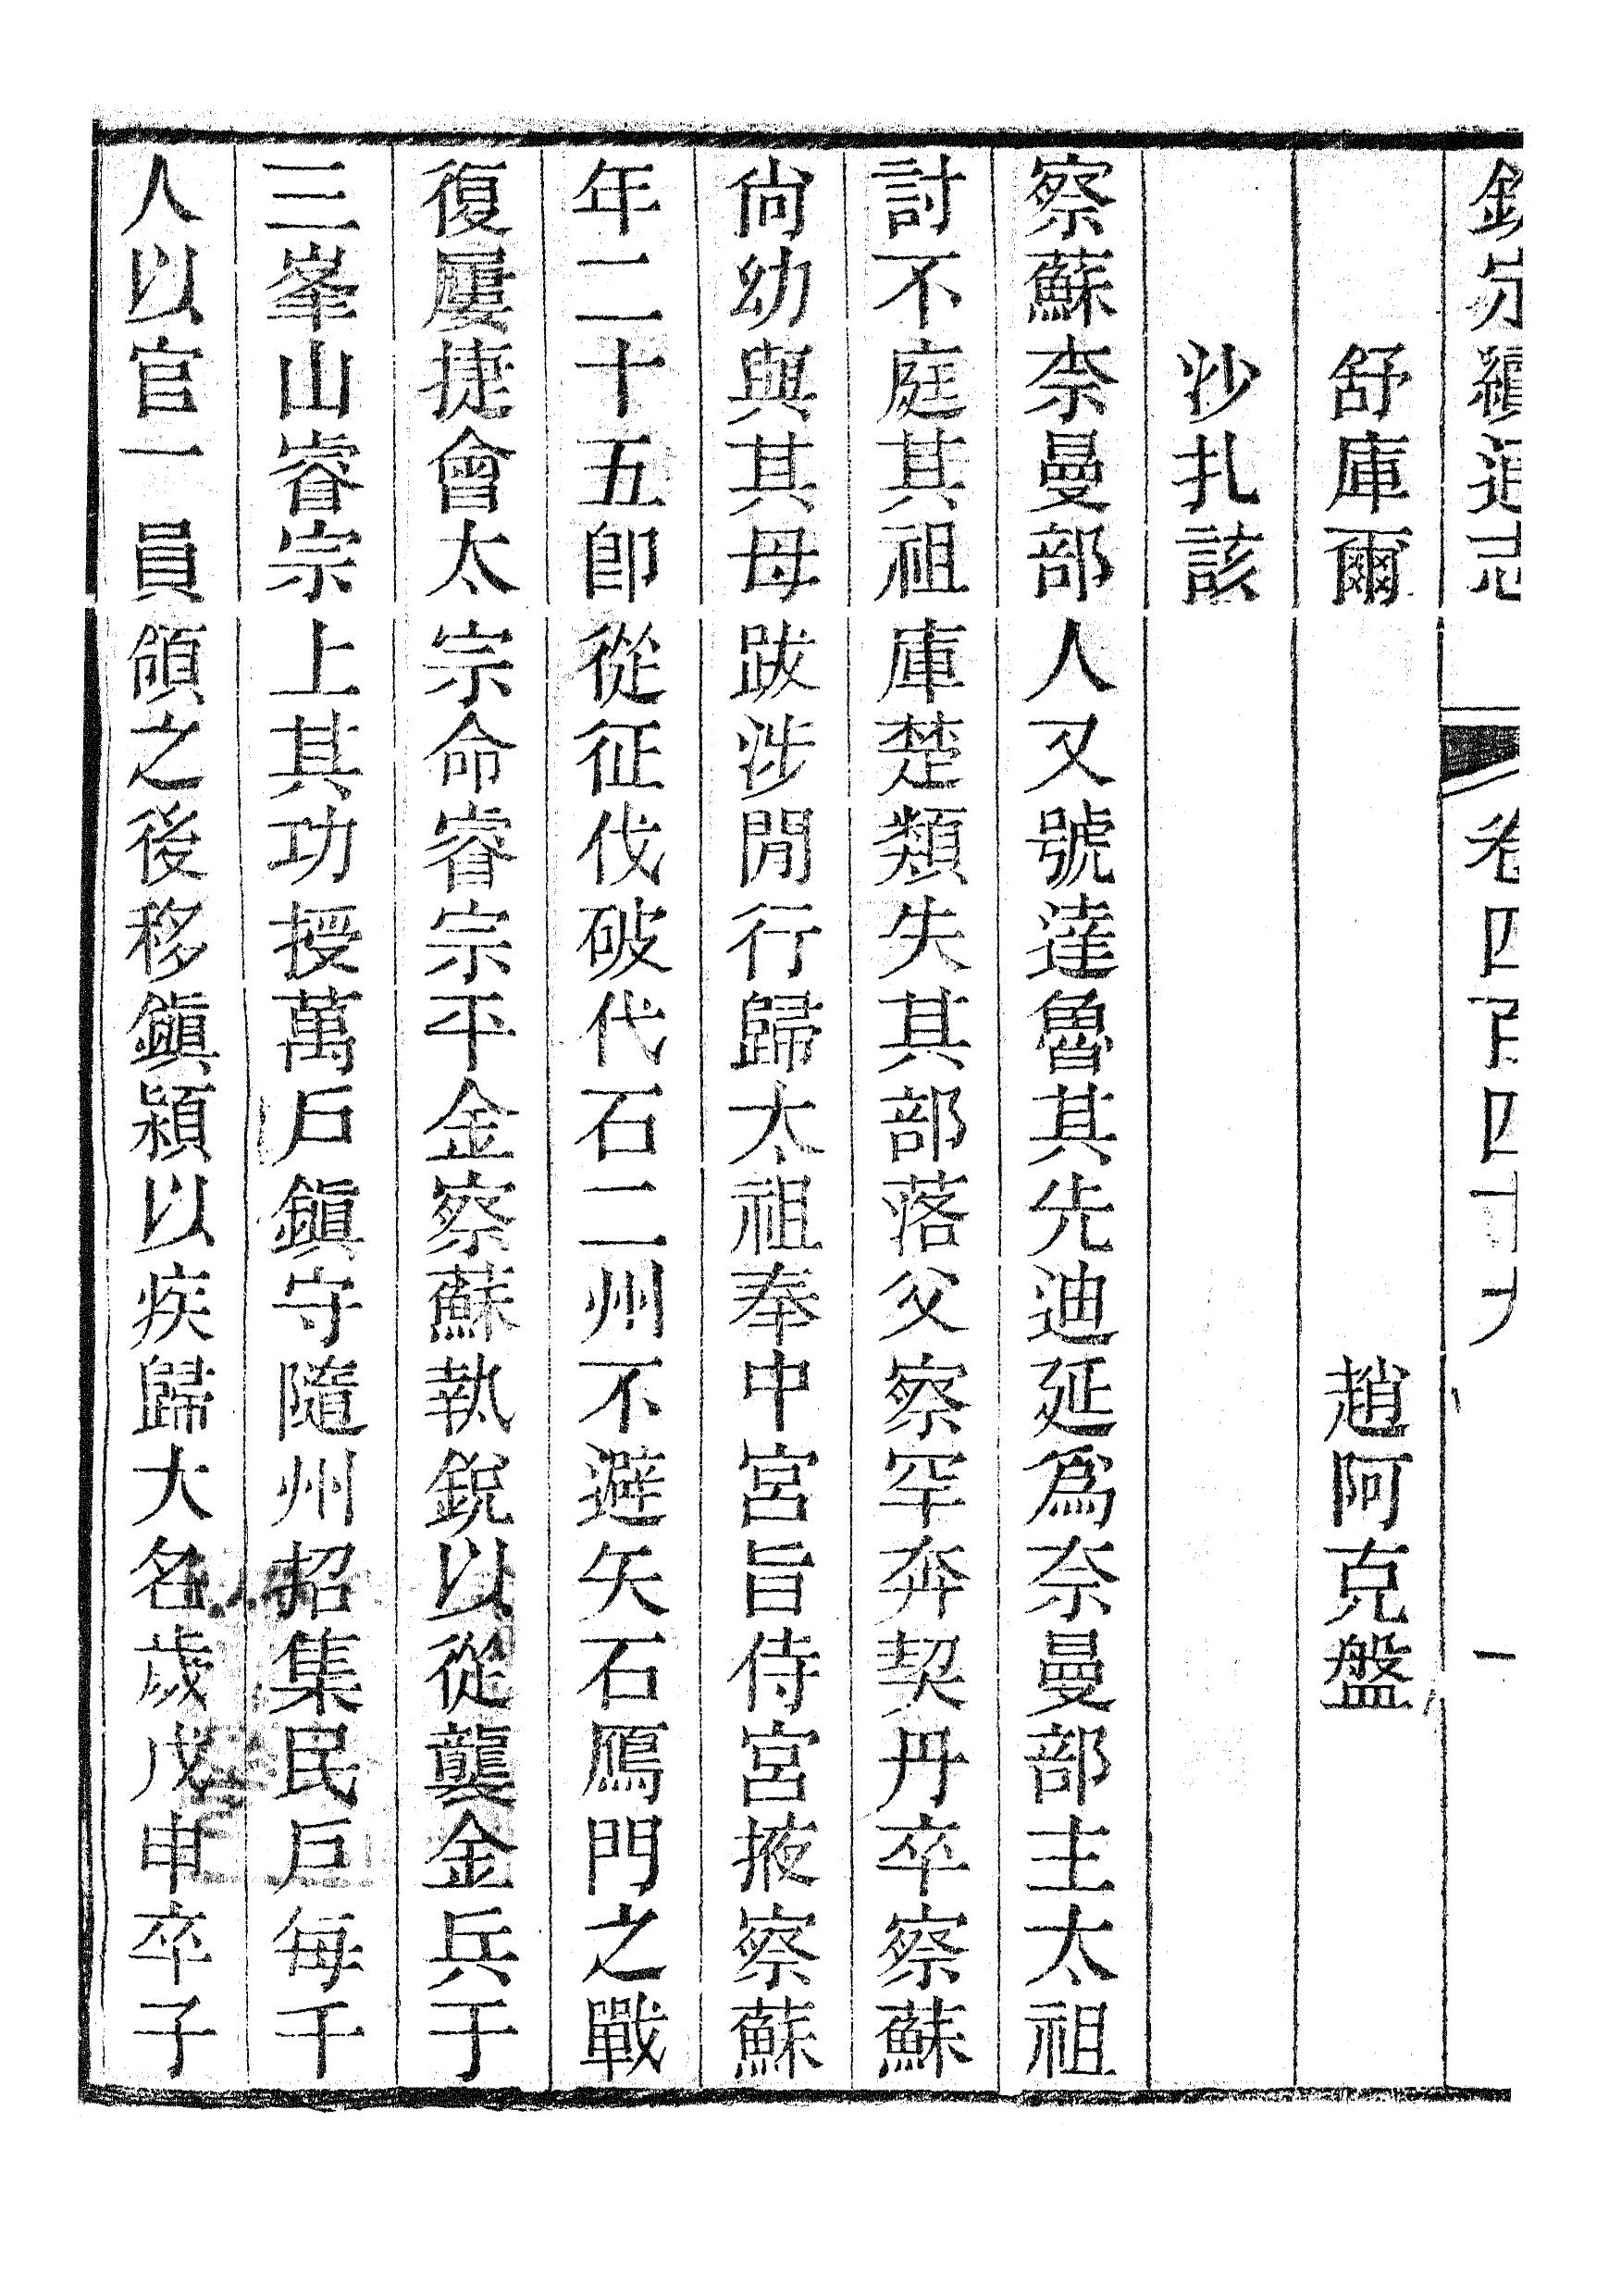 欽定續通志 卷四百四十九 一
舒庫爾 趙阿克盤
沙扎該
察蘇柰曼部人又號達魯其先迪延爲奈曼部主太祖
討不庭其祖庫楚類失其部落父察罕奔契丹卒察蘇
尙幼與其母跋涉閒行歸太祖奉中宮旨侍宮掖察蘇
年二十五卽從征伐破代石二州不避矢石鴈門之戰
復屢捷會太宗命睿宗平金察蘇執銳以從襲金兵于
三峯山睿宗上其功授萬戶鎭守隨州招集民戶每千
人以官一員領之後移鎭潁以疾歸大名歲戊申卒子